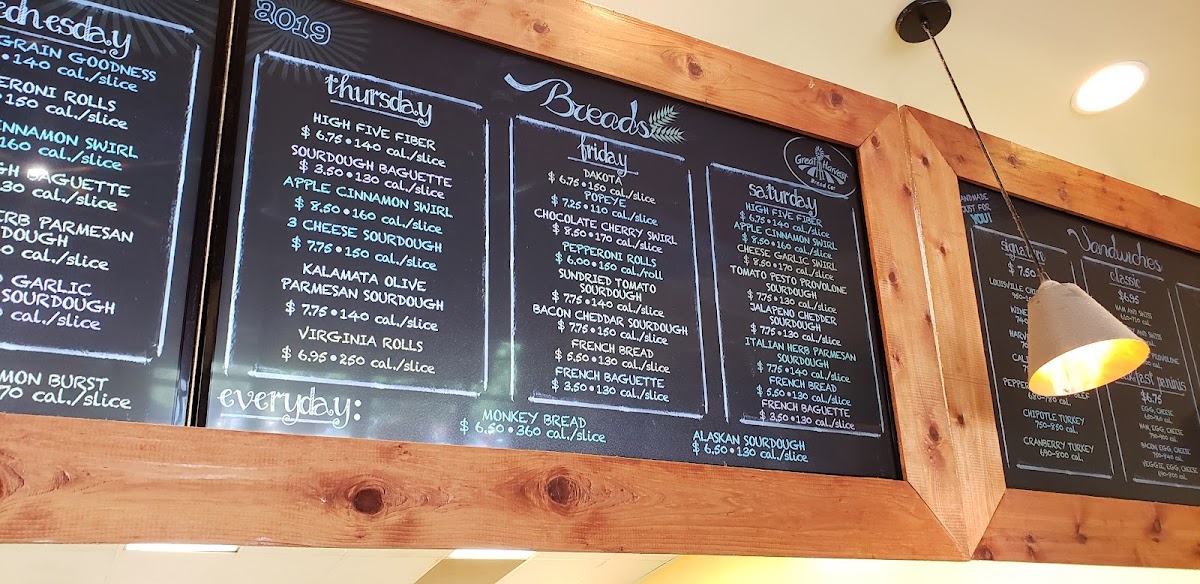 ednesday
GRAIN GOODNESS
140 cal./slice
ERONI ROLLS
150 cal./slice
INNAMON SWIRL
160 cal./slice
GH BAGUETTE
30 cal./slice
ERB PARMESAN
DOUGH
0 cal./slice
GARLIC
SOURDOUGH
cal./slice
MON BURST
70 cal./slice
2019
Breads
thursday
HIGH FIVE FIBER
$ 6.75 • 140 cal./slice
SOURDOUGH BAGUETTE
$ 3.50 • 130 cal./slice
APPLE CINNAMON SWIRL
$ 8.50 • 160 cal./slice
3 CHEESE SOURDOUGH
$ 7.75 • 150 cal./slice
KALAMATA OLIVE
PARMESAN SOURDOUGH
$ 7.75 • 140 cal./slice
VIRGINIA ROLLS
$ 6.95 • 250 cal./slice
friday
DAKOTA
$ 6.75 • 150 cal./slice
POPEYE
$ 7.25 • 110 cal./slice
CHOCOLATE CHERRY SWIRL
$ 8.50 • 170 cal./slice
PEPPERONI ROLLS
$ 6.00 • 150 cal./roll
SUNDRIED TOMATO
SOURDOUGH
$ 7.75 • 140 cal./slice
BACON CHEDDAR SOURDOUGH
$ 7.75 • 150 cal./slice
FRENCH BREAD
$ 5.50 • 130 cal./slice
FRENCH BAGUETTE
$ 3.50 • 130 cal./slice
Great Harvest
Bread Co.
saturday
HIGH FIVE FIBER
$ 6.75 • 140 cal./slice
APPLE CINNAMON SWIRL
$ 8.50 • 160 cal./slice
CHEESE GARLIC SWIRL
$ 8.50 • 170 cal./slice
TOMATO PESTO PROVOLONE
SOURDOUGH
$ 7.75 • 130 cal./slice
JALAPENO CHEDDER
SOURDOUGH
$ 7.75 • 130 cal./slice
ITALIAN HERB PARMESAN
SOURDOUGH
$ 7.75 • 140 cal./slice
FRENCH BREAD
$ 5.50 • 130 cal./slice
FRENCH BAGUETTE
$ 3.50 • 130 cal./slice
everyday:
MONKEY BREAD
$ 6.50 • 360 cal./slice
ALASKAN SOURDOUGH
$ 6.50 • 130 cal./slice
HANDMADE
JUST FOR
YOU!
Sandwiches
signatu
$ 7.50
LOUISVILLE
WINE
HARV
CAL
PEPPER
CHIPOTLE TURKEY
750-850 cal.
CRANBERRY TURKEY
690-800 cal.
classic
$6.95
HAM AND SWISS
AND SWISS
PROVOLONE
paninis
$6.75
EGG, CHEESE
HAM, EGG, CHEESE
BACON, EGG, CHEESE
VEGGIE, EGG, CHEESE